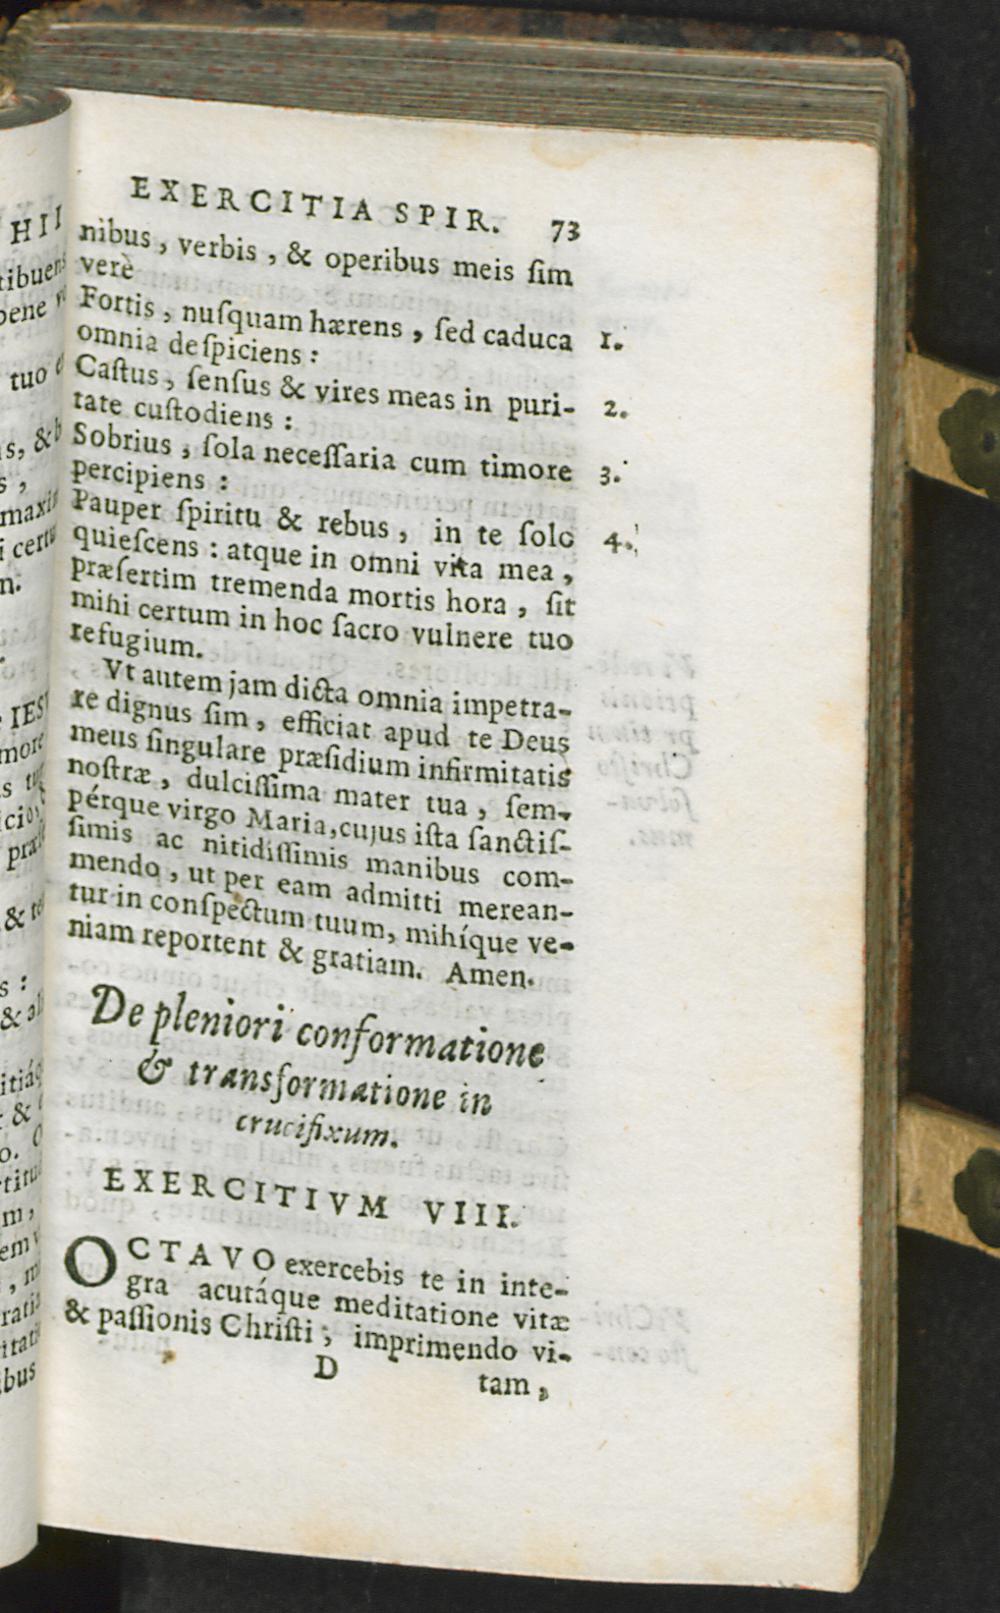 EXERCITIA SPIR. 73
nibus, verbis, & operibus meis ſim
verè
Fortis, nuſquam hærens, ſed caduca 1.
omnia deſpiciens:
Caſtus, ſenſus & vires meas in puri- 2.
tate cuſtodiens:
Sobrius, ſola neceſſaria cum timore 3.
percipiens:
Pauper ſpiritu & rebus, in te ſolo 4.
quieſcens: atque in omni vita mea,
præſertim tremenda mortis hora, ſit
mihi certum in hoc ſacro vulnere tuo
refugium.
Vt autem jam dicta omnia impetra-
re dignus ſim, efficiat apud te Deus
meus ſingulare præſidium infirmitatis
noſtræ, dulciſſima mater tua, ſem-
pérque virgo Maria, cujus iſta ſanctiſ-
ſimis ac nitidiſſimis manibus com-
mendo, ut per eam admitti merean-
tur in conſpectum tuum, mihíque ve-
niam reportent & gratiam. Amen.
De pleniori conformatione
& transformatione in
crucifixum.
EXERCITIVM VIII.
OCTAVO exercebis te in inte-
gra acutáque meditatione vitæ
& paſſionis Chriſti; imprimendo vi-
D
tam,